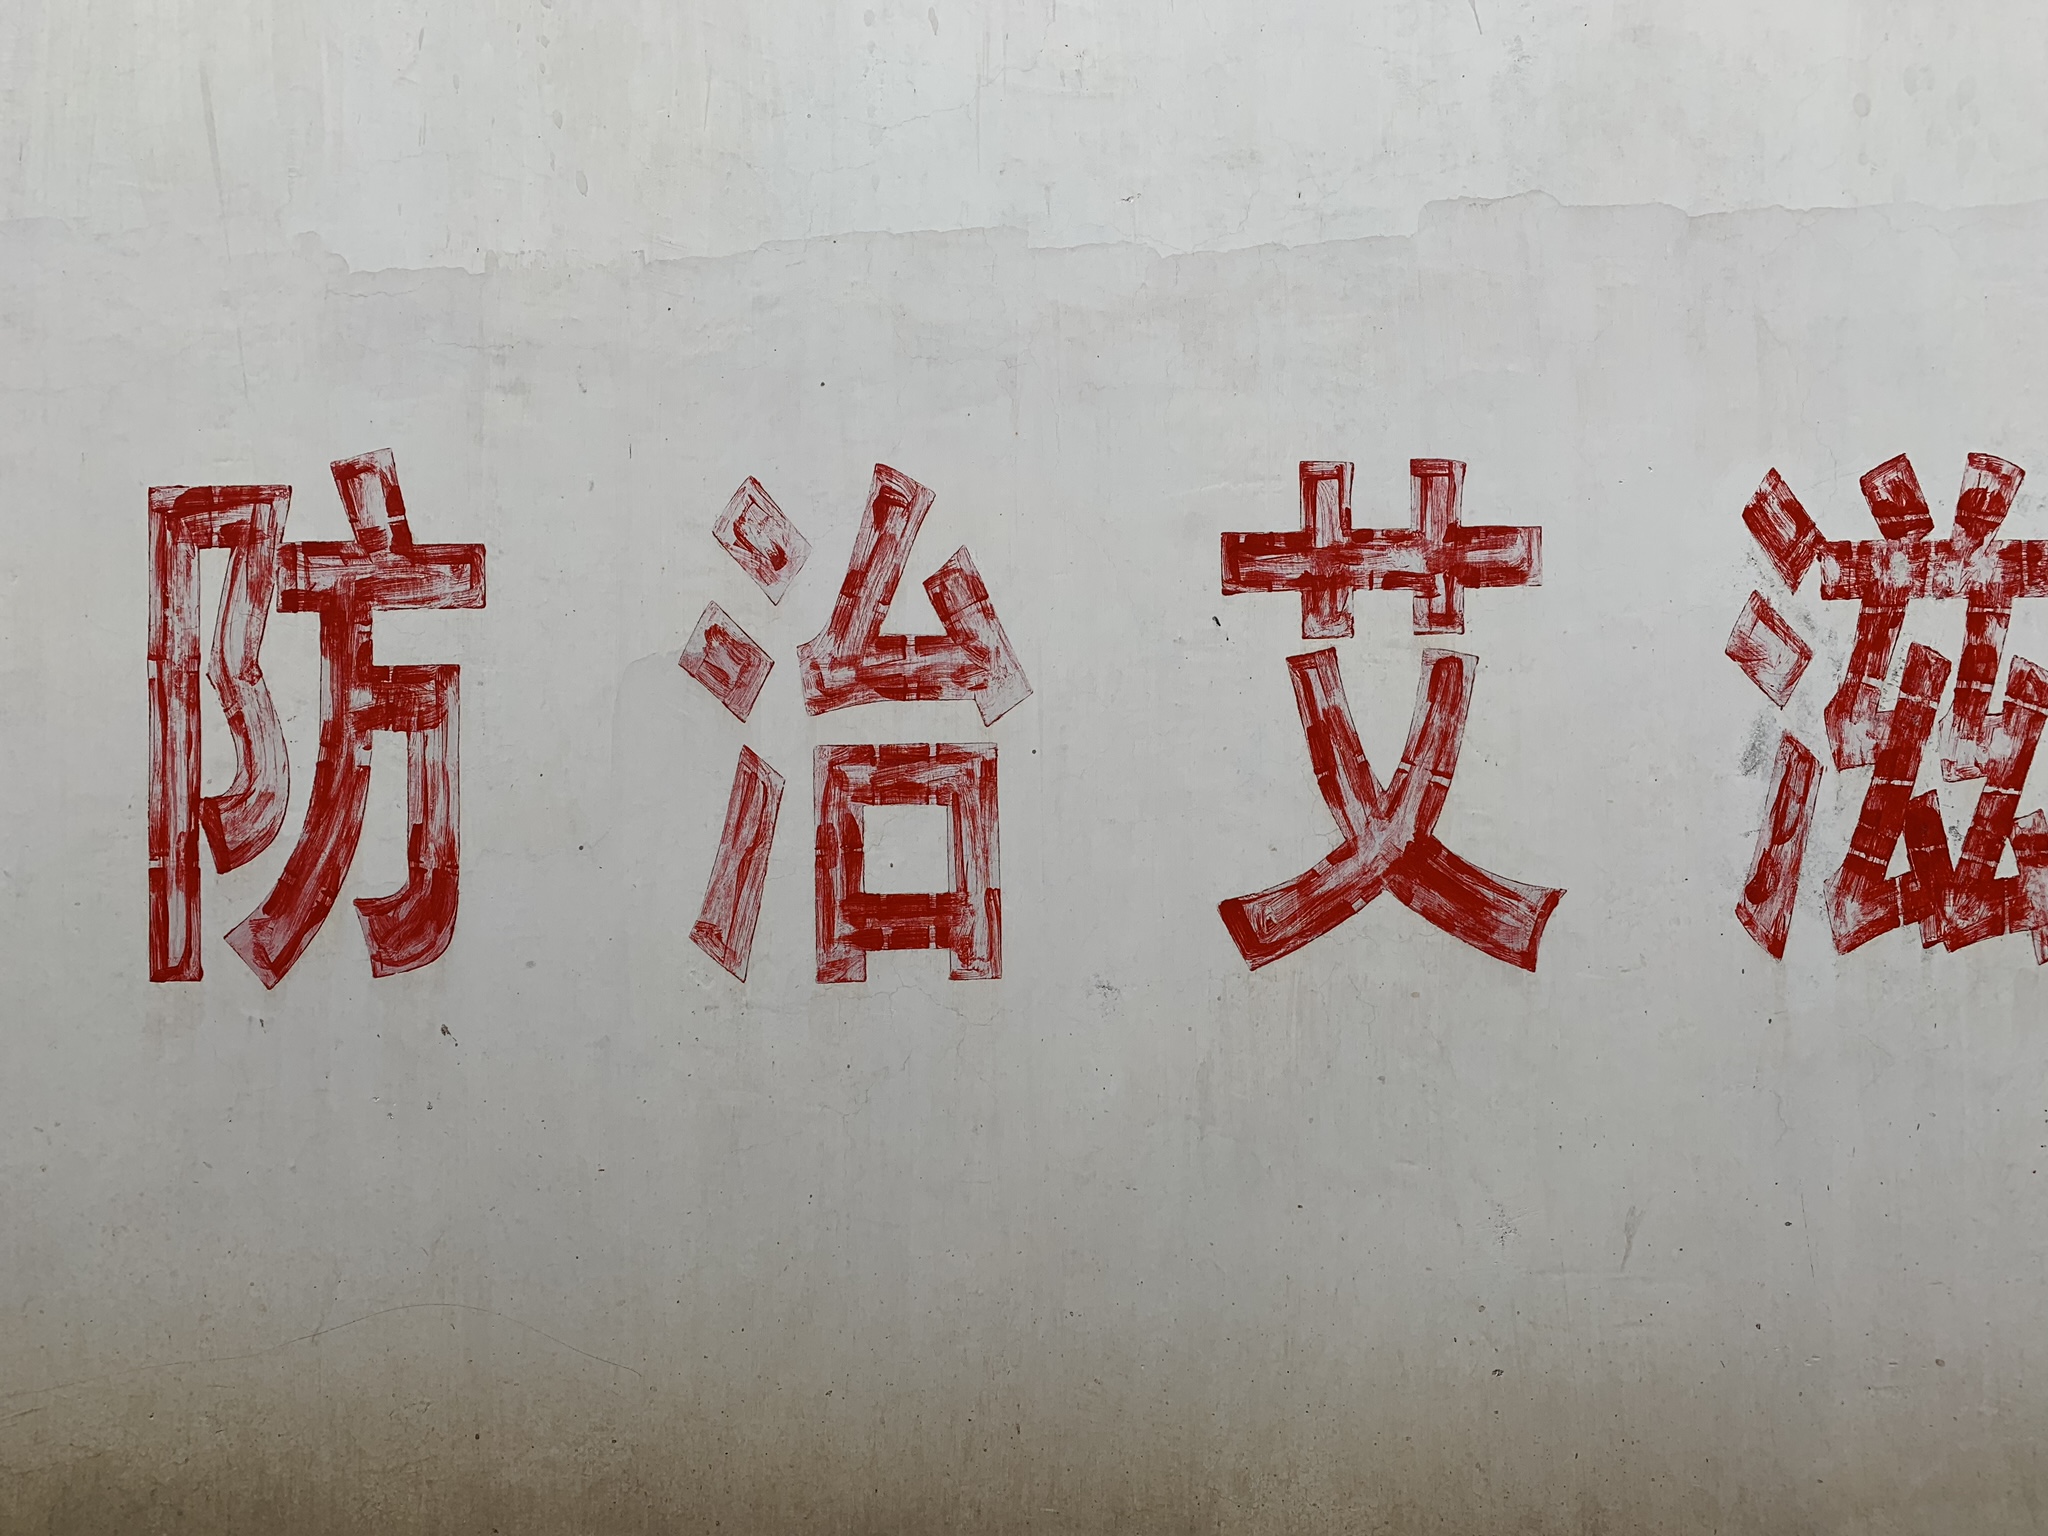 防治艾滋